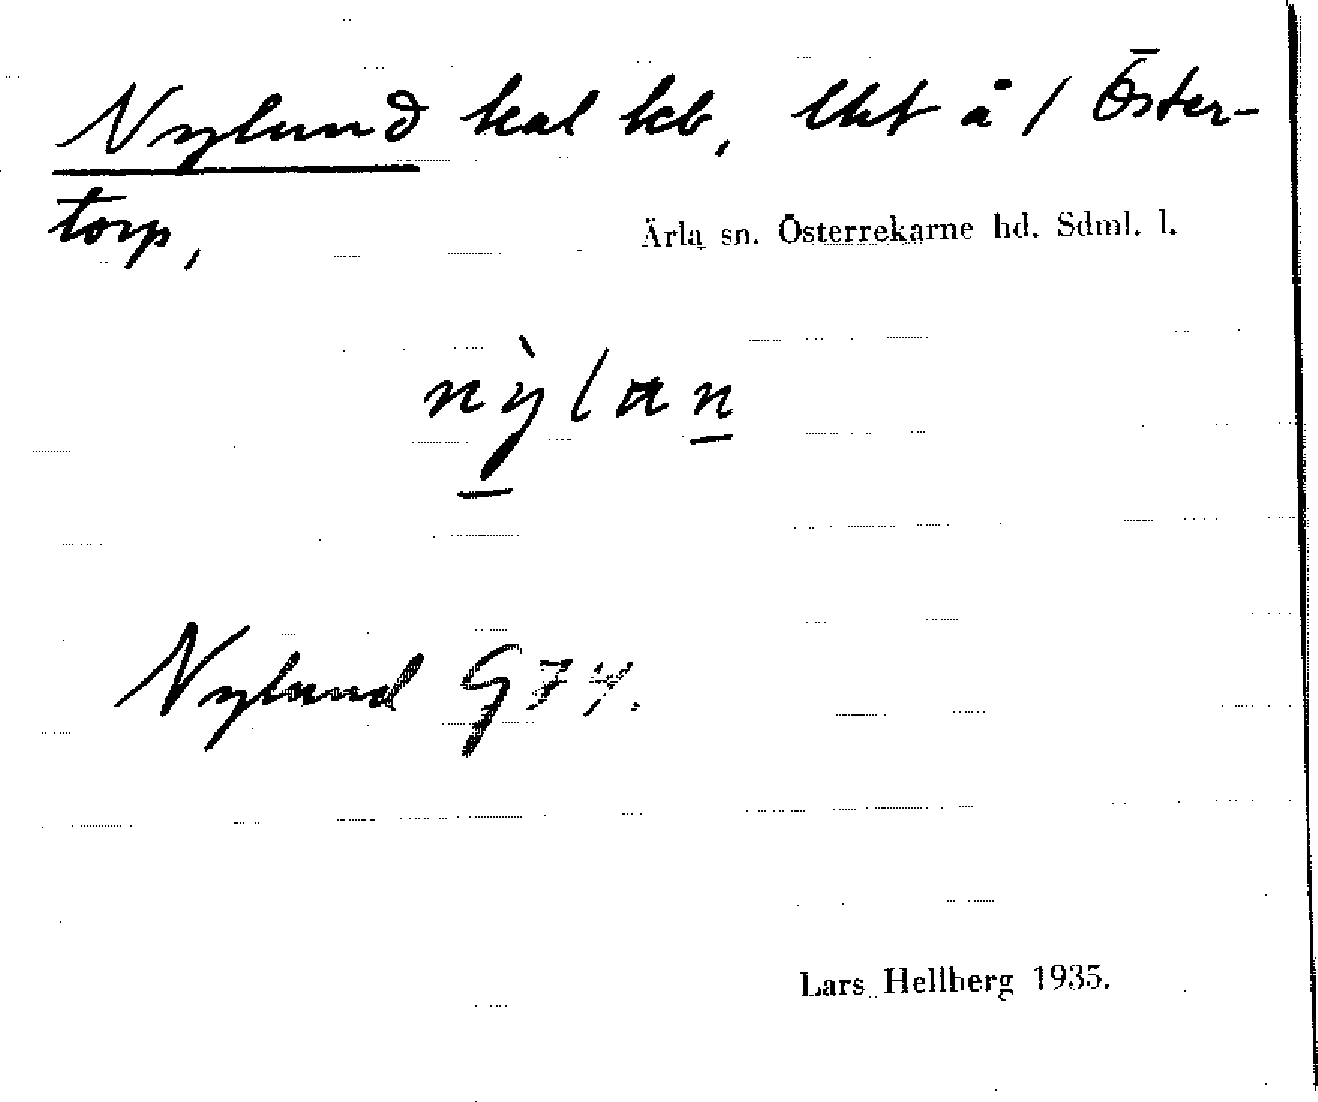 Nylund kal lcb, lht å 1 Öster-
torp,
Ärla sn. Österrekarne hd. Sdml. l.
nỳlan
Nylund G 74.
Lars Hellberg 1935.